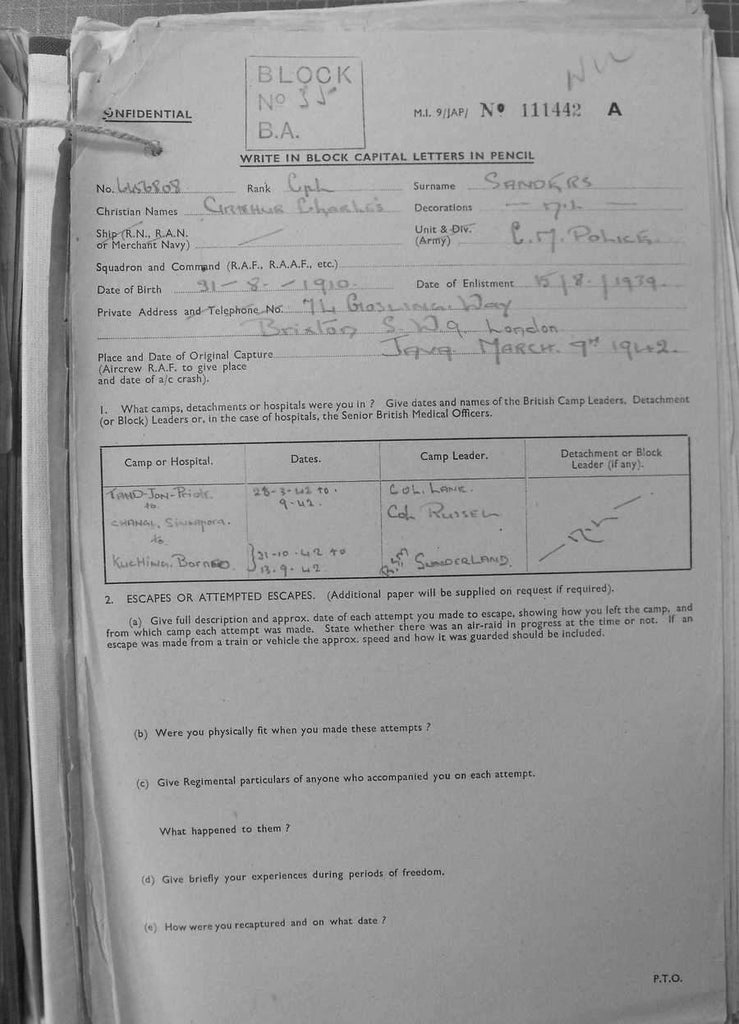 CONFIDENTIAL
BLOCK
No 35
B.A.
M.I. 9/JAP/ No 111442 A
WRITE IN BLOCK CAPITAL LETTERS IN PENCIL
No. 6456808 Rank Cpl Surname SANDERS
Christian Names Arthur Charles Decorations — NIL —
Ship (R.N., R.A.N. or Merchant Navy) Unit & Div. (Army) C.M. POLICE
Squadron and Command (R.A.F., R.A.A.F., etc.)
Date of Birth 31-8-1910 Date of Enlistment 15/8/1939.
Private Address and Telephone No. 74 Gosling Way
Brixton S.W.9. London
Place and Date of Original Capture Java MARCH 9th 1942.
(Aircrew R.A.F. to give place
and date of a/c crash).
1. What camps, detachments or hospitals were you in ? Give dates and names of the British Camp Leaders, Detachment
(or Block) Leaders or, in the case of hospitals, the Senior British Medical Officers.
Camp or Hospital. Dates. Camp Leader. Detachment or Block Leader (if any).
28-3-42 to. COL. LANE.
to 9-42. Col RUSSEL
Singapora.
to
KUCHING. Borneo. 31-10-42 to SUNDERLAND.
13.9.42
2. ESCAPES OR ATTEMPTED ESCAPES. (Additional paper will be supplied on request if required).
(a) Give full description and approx. date of each attempt you made to escape, showing how you left the camp, and
from which camp each attempt was made. State whether there was an air-raid in progress at the time or not. If an
escape was made from a train or vehicle the approx. speed and how it was guarded should be included.
(b) Were you physically fit when you made these attempts ?
(c) Give Regimental particulars of anyone who accompanied you on each attempt.
What happened to them ?
(d) Give briefly your experiences during periods of freedom.
(e) How were you recaptured and on what date ?
P.T.O.